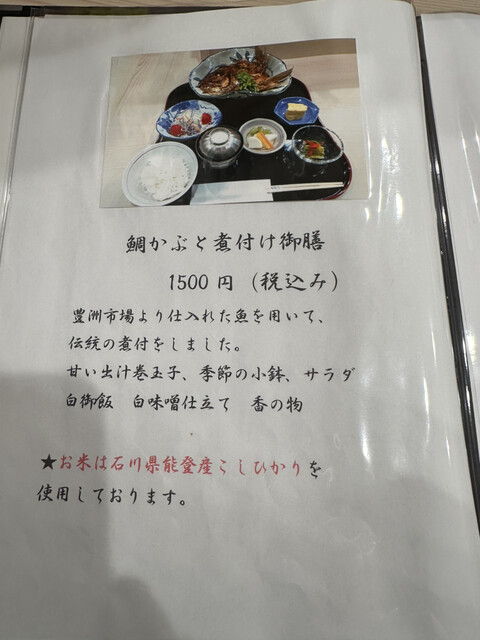 鯛かぶと煮付け御膳
1500円（税込み）
豊洲市場より仕入れた魚を用いて、
伝統の煮付をしました。
甘い出汁巻玉子、季節の小鉢、サラダ
白御飯　白味噌仕立て　香の物
★お米は石川県能登産こしひかりを
使用しております。